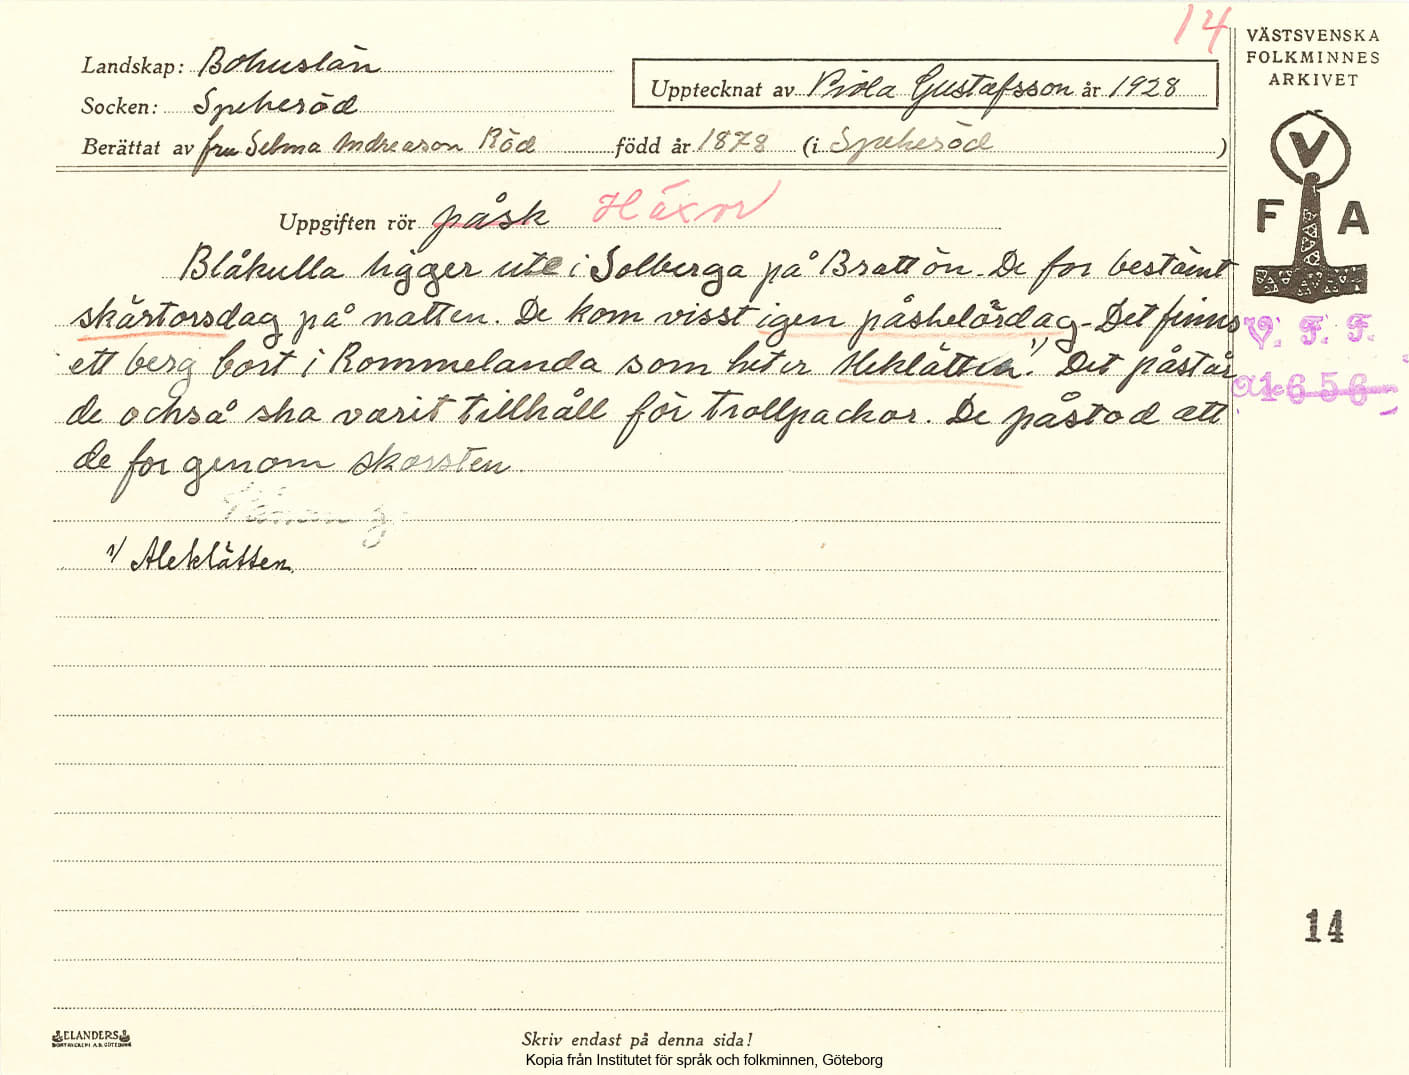 14
VÄSTSVENSKA
FOLKMINNES
ARKIVET
Landskap: Bohuslän
Upptecknat av Viola Gustafsson år 1928
Socken: Spekeröd
Berättat av fru Selma Andreason Röd född år 1878 (i Spekeröd)
V
F A
Uppgiften rör påsk Häxor
Blåkulla ligger ute i Solberga på Brattön. De for bestämt
skärtorsdag på natten. De kom visst igen påskelördag. Det finns
ett berg bort i Rommelanda som heter Aleklätten 1). Det påstår
de också ska varit tillhåll för trollpackor. De påstod att
de for genom skorsten.
1/ Aleklätten.
V. F. F.
1656
14
ELANDERS
BOKTRYCKERI A.B. GÖTEBORG
Skriv endast på denna sida!
Kopia från Institutet för språk och folkminnen, Göteborg